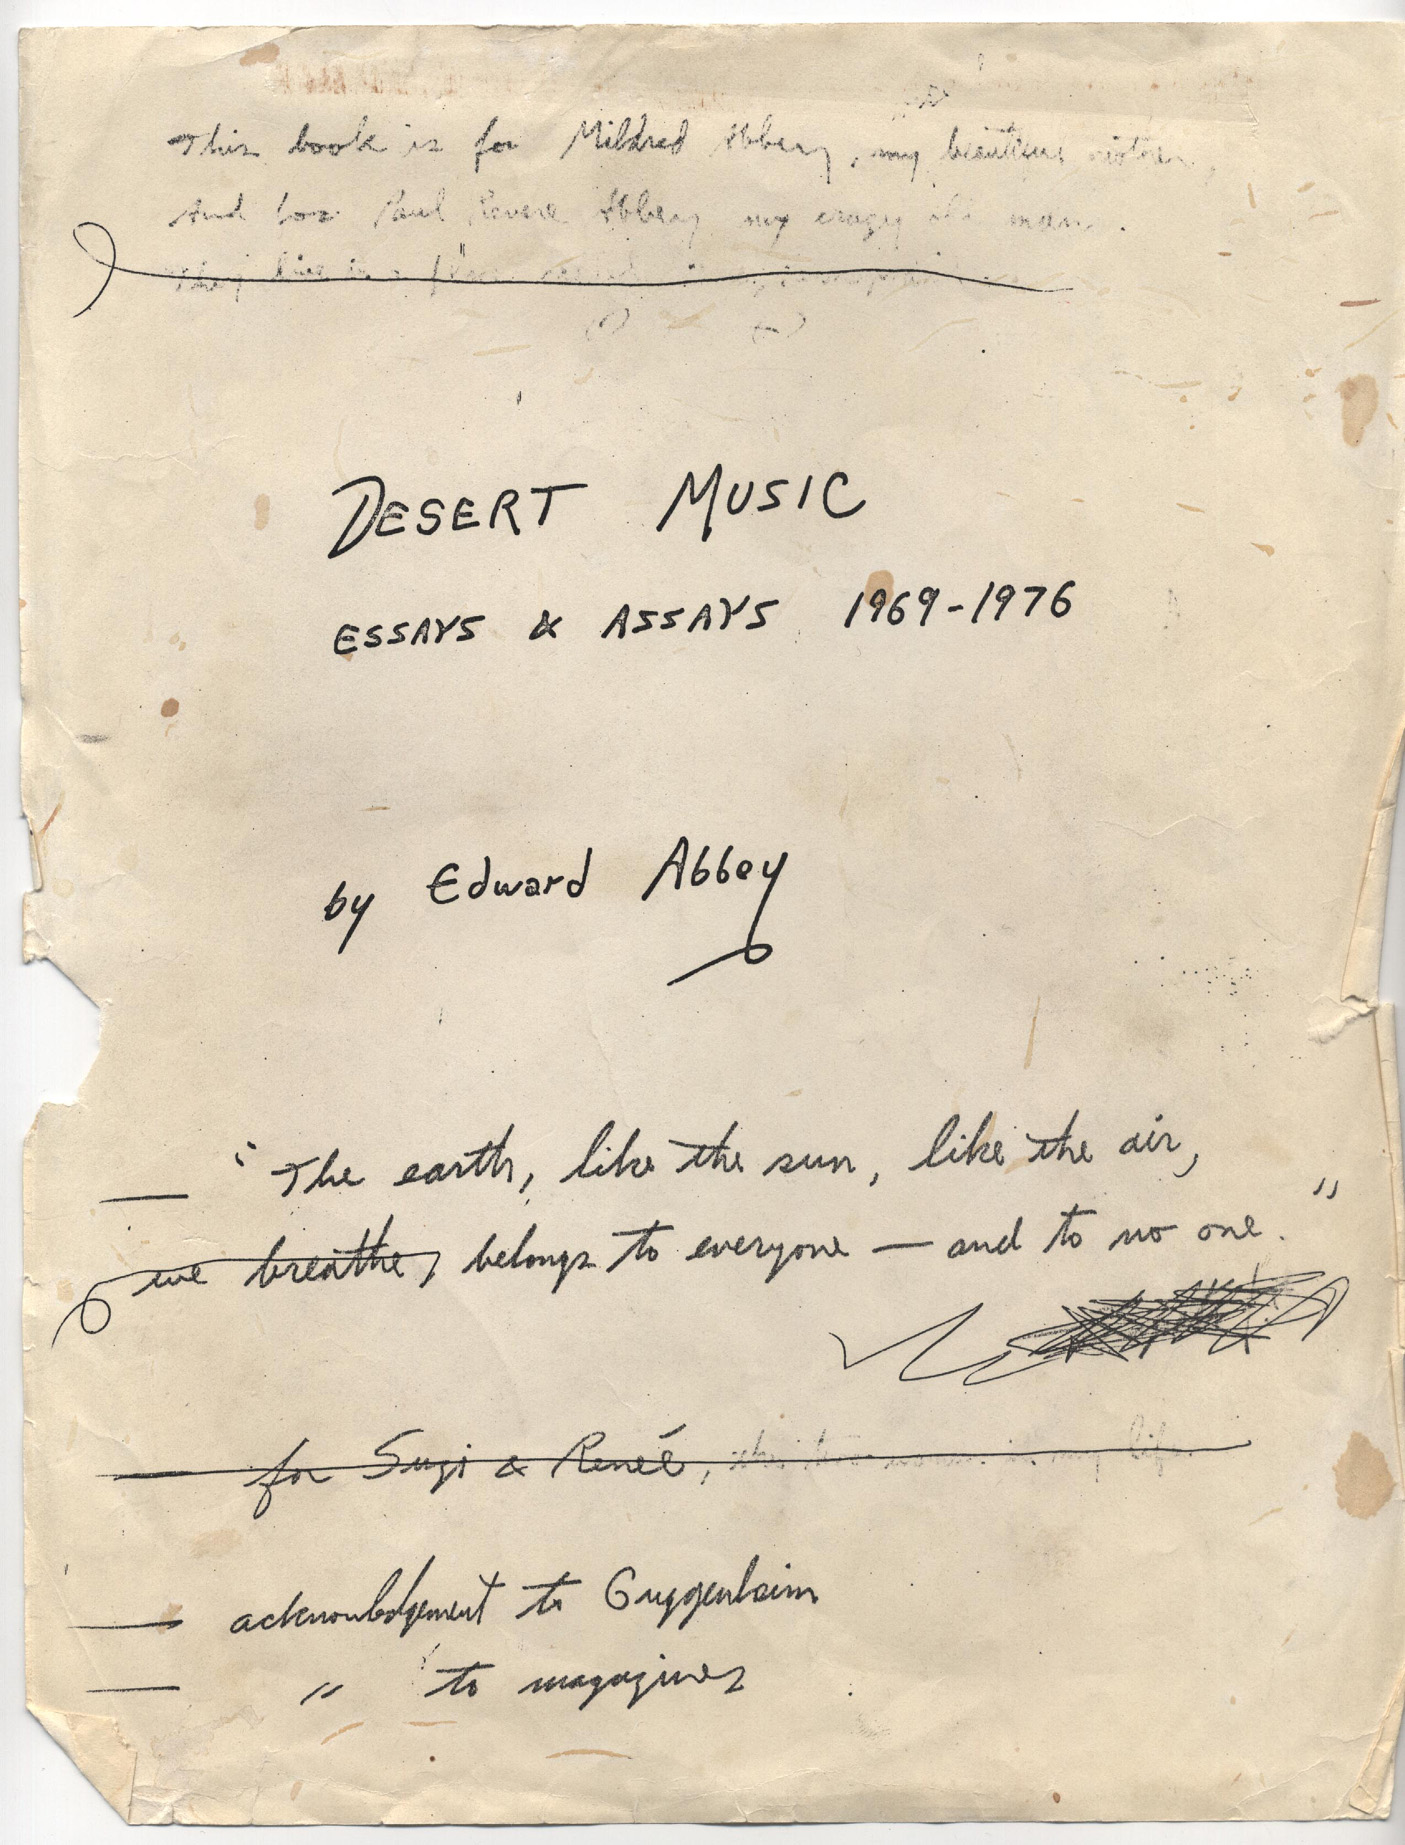 This book is for Mildred Abbey, my beautiful mother,
And for Paul Revere Abbey my crazy old man.
They live in a
DESERT MUSIC
ESSAYS & ASSAYS 1969-1976
by Edward Abbey
— "The earth, like the sun, like the air,
we breathe, belongs to everyone — and to no one."
for Suzi & Reneé, the two in my life
— acknowledgement to Guggenheim
— " to magazines